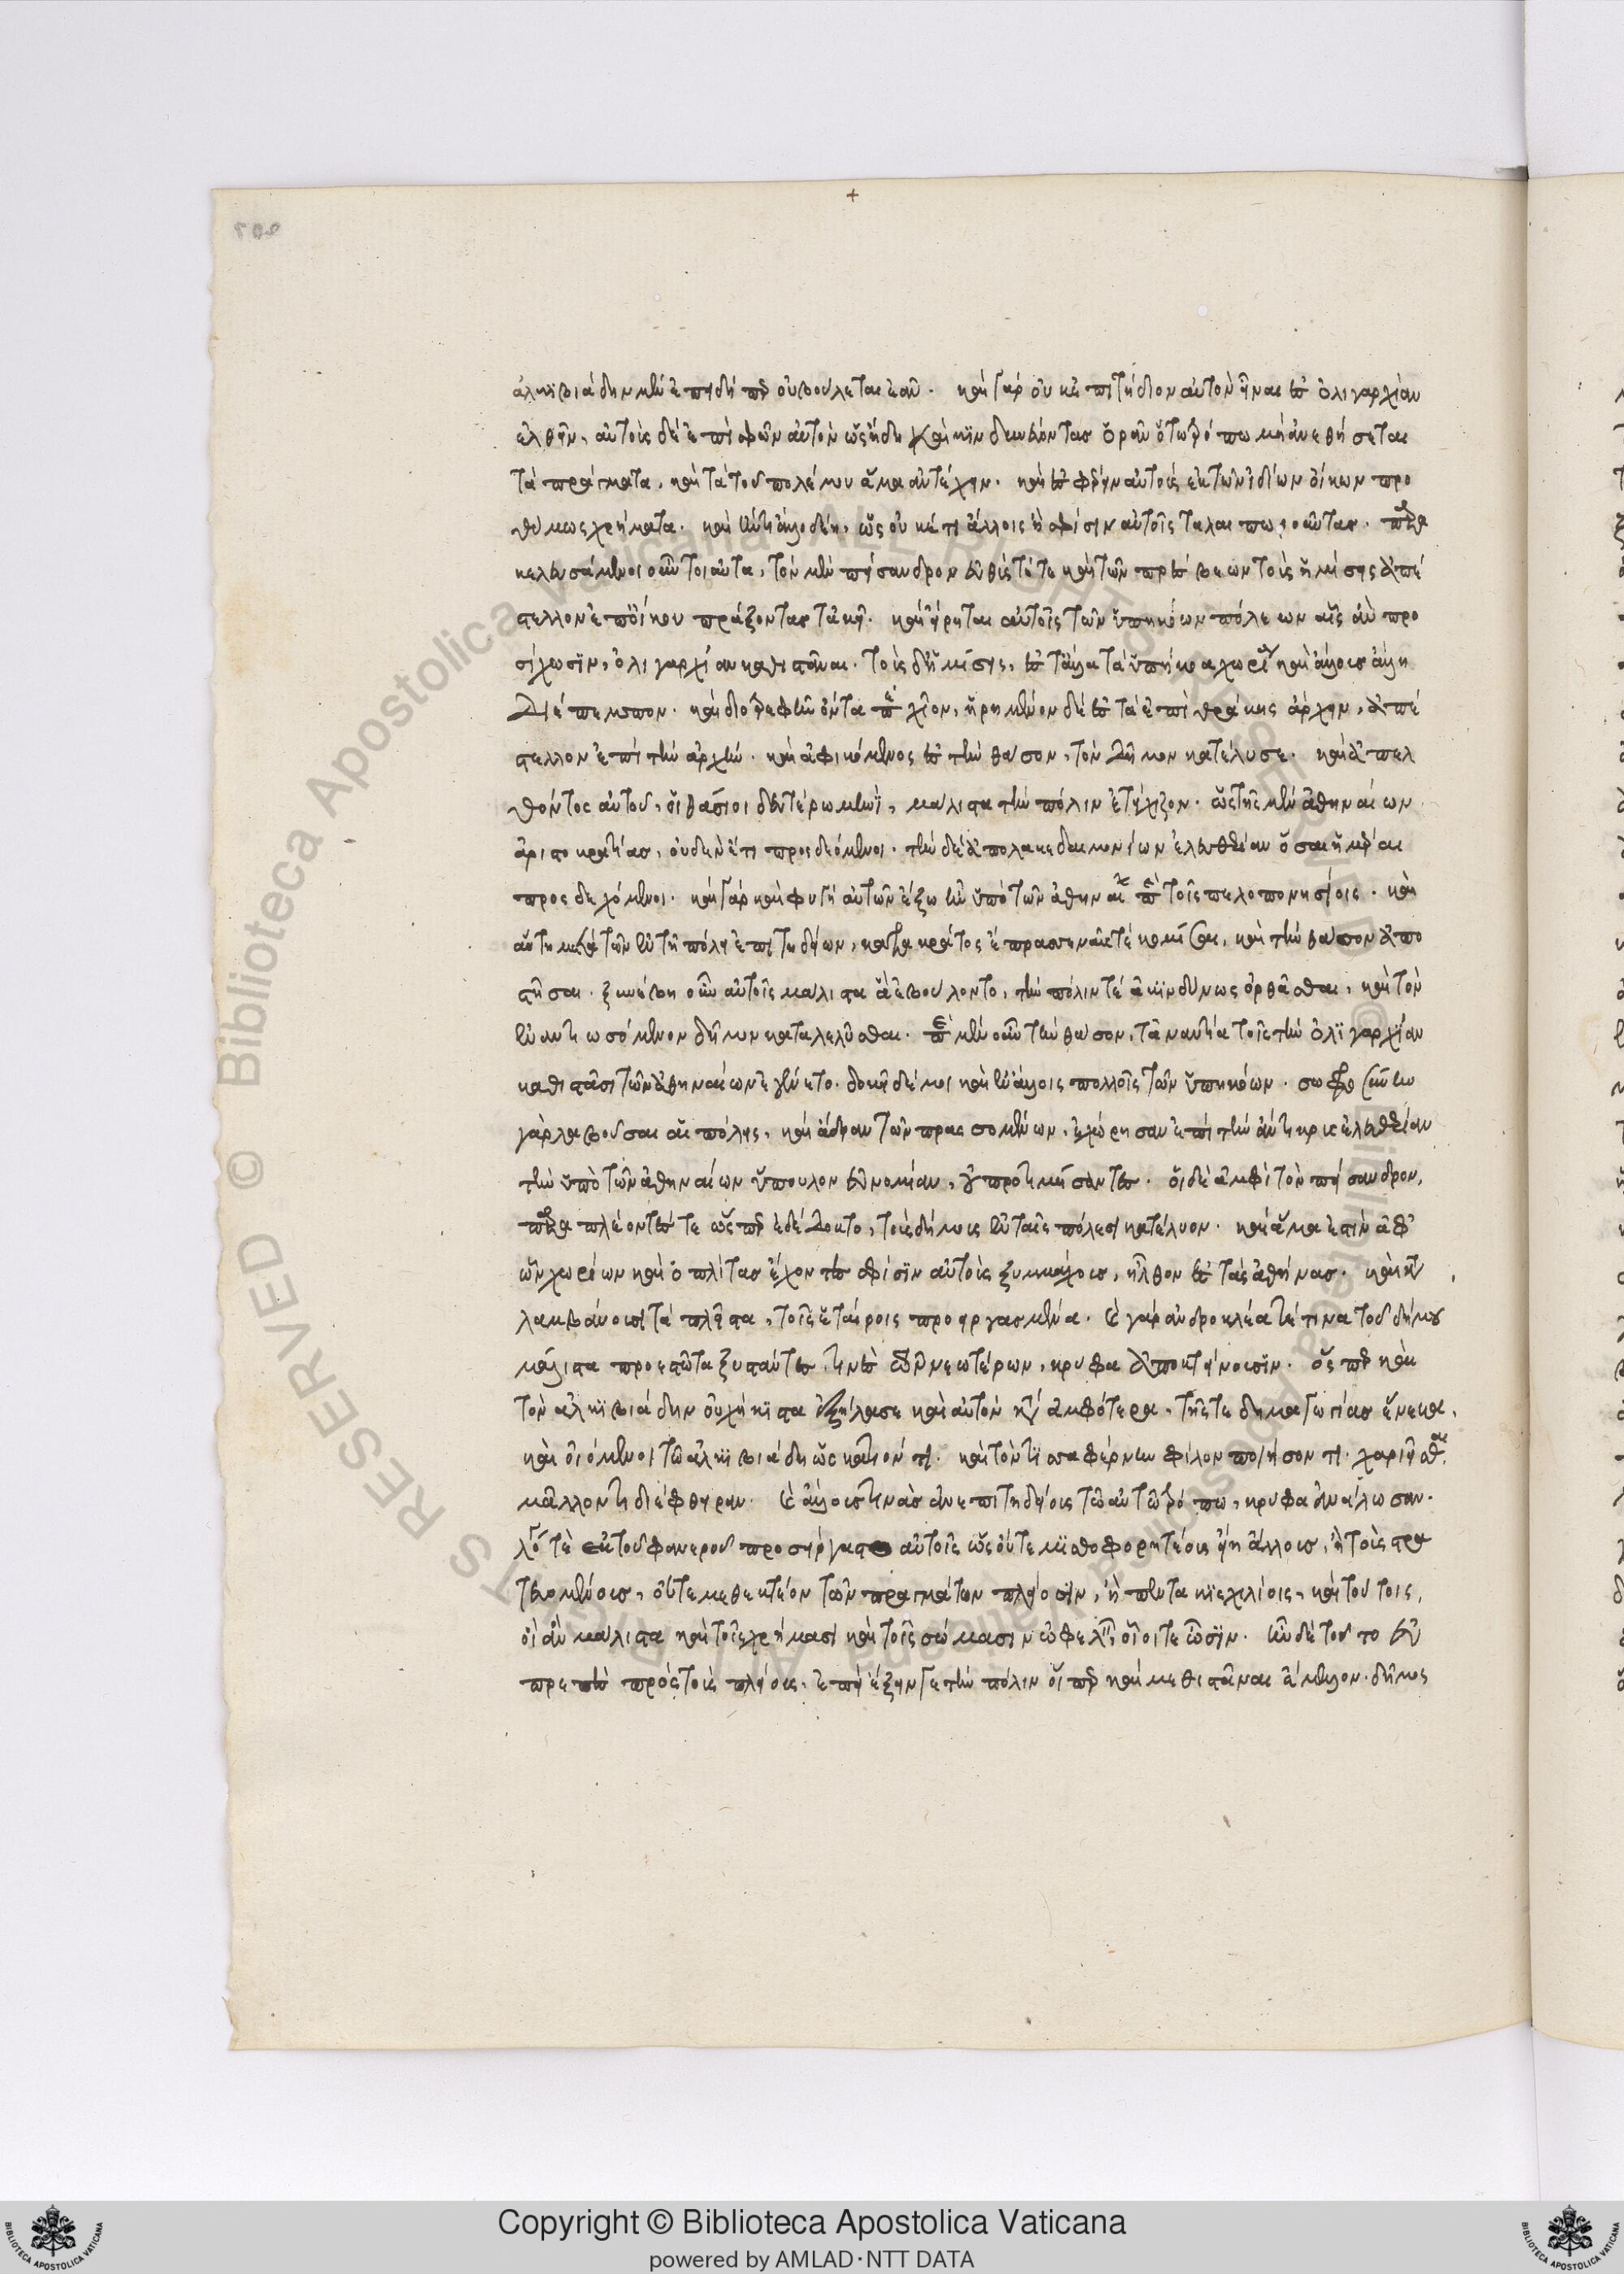 ἀλκιβιάδην μὲν ἐπειδήπερ οὐ βούλεται ἐᾶν. καὶ γὰρ οὐκ ἐπιτήδειον αὐτὸν εἶναι ἐς ὀλιγαρχίαν
ἐλθεῖν, αὐτοὺς δὲ ἐπὶ σφῶν αὐτῶν ὡς ἤδη καὶ κινδυνεύοντας ὁρᾶν ὅτω τρόπω μὴ ἀνεθήσεται
τὰ πράγματα, καὶ τὰ τοῦ πολέμου ἅμα ἀντέχειν. καὶ ἐσφέρειν αὐτοὺς ἐκ τῶν ἰδίων οἴκων προ
θύμως χρήματα. καὶ ἤν τι ἄλλο δέη, ὡς οὐκέτι ἄλλοις ἢ σφίσιν αὐτοῖς ταλαιπωροῦντας. παρα
κελευσάμενοι οὖν τοιαῦτα, τὸν μὲν πείσανδρον εὐθὺς τότε καὶ τῶν πρέσβεων τοὺς ἡμίσεις ἀπέ
στελλον ἐπ οἴκου πράξοντας τἀκεῖ. καὶ εἴρηται αὐτοῖς τῶν ὑπηκόων πόλεων αἷς ἂν προ
σίχωσιν, ὀλιγαρχίαν καθιστάναι. τοὺς δ' ἡμίσεις, ἐς τἆλλα τὰ ὑπήκοα χωρία καὶ ἄλλους ἄλλη
διέπεμπον. καὶ διοτρεφῆν ὄντα περὶ χίον, ἡρημένον δὲ ἐς τὰ ἐπὶ θράκης ἄρχειν, ἀπέ
στελλον ἐπὶ τὴν ἀρχήν. καὶ ἀφικόμενος ἐς τὴν θάσον, τὸν δῆμον κατέλυσε. καὶ ἀπελ
θόντος αὐτοῦ, οἱ θάσιοι δευτέρω μηνὶ, μάλιστα τὴν πόλιν ἐτείχιζον. ὡς τῆς μὲν ἀθηναίων
ἀριστοκρατίας, οὐδὲν ἔτι προσδεόμενοι. τὴν δὲ ἀπὸ λακεδαιμονίων ἐλευθερίαν ὅσαι ἡμέραι
προσδεχόμενοι. καὶ γὰρ καὶ φυγὴ αὐτῶν ἔξω ἦν ὑπὸ τῶν ἀθηναίων παρὰ τοῖς πελοπονησίοις. καὶ
αὕτη μετὰ τῶν ἐν τῆ πόλει ἐπιτηδείων, κατὰ κράτος ἔπρασσε ναῦς τὲ κομίσαι, καὶ τὴν θάσον ἀπο
στῆσαι. ξυνέβη οὖν αὐτοῖς μάλιστα ἃ ἐβούλοντο, τὴν πόλιν τὲ ἀκινδύνως ὀρθοῦσθαι, καὶ τὸν
ἐναντιωσόμενον δῆμον καταλελῦσθαι. περὶ μὲν οὖν τὴν θάσον, τἀναντία τοῖς τὴν ὀλιγαρχίαν
καθιστᾶσι τῶν ἀθηναίων ἐγένετο. δοκεῖ δέ μοι καὶ ἐν ἄλλοις πολλοῖς τῶν ὑπηκόων. σωφροσύνην
γὰρ λαβοῦσαι αἱ πόλεις, καὶ ἄδειαν τῶν πρασσομένων, ἐχώρησαν ἐπὶ τὴν ἄντικρις ἐλευθερίαν
τὴν ὑπὸ τῶν ἀθηναίων ὕπουλον εὐνομίαν, οὐ προτιμήσαντες. οἱ δὲ ἀμφὶ τὸν πείσανδρον,
παραπλέοντές τε ὥσπερ ἐδέδοκτο, τοὺς δήμους ἐν ταῖς πόλεσι κατέλυον. καὶ ἅμα ἔστιν ἀφ'
ὧν χωρίων καὶ ὁπλίτας ἔχοντες σφίσιν αὐτοῖς ξυμμάχους, ἦλθον ἐς τὰς ἀθήνας. καὶ κατα
λαμβάνουσι τὰ πλεῖστα, τοῖς ἑταίροις προειργασμένα. καὶ γὰρ ἀνδροκλέα τέ τινα τοῦ δήμου
μάλιστα προεστῶτα ξυστάντες, τινὲς τῶν νεωτέρων, κρύφα ἀποκτείνουσιν. ὅσπερ καὶ
τὸν ἀλκιβιάδην οὐχ ἥκιστα ἐξήλασε καὶ αὐτὸν κατ' ἀμφότερα. τῆς τε δημαγωγίας ἕνεκα,
καὶ οἰόμενοι τῶ ἀλκιβιάδη ὡς κατιόντι. καὶ τὸν τισσαφέρνην φίλον ποιήσοντι. χαριεῖσθαι
μᾶλλόν τι διέφθειραν. καὶ ἄλλους τινὰς ἀνεπιτηδείους τῶ αὐτῶ τρόπω, κρύφα ἀνάλωσαν.
λόγος τὲ ἐκ τοῦ φανεροῦ προσείργαστο αὐτοῖς ὡς οὔτε μισθοφορητέον εἴη ἄλλους, ἢ τοὺς στρα
τευομένους, οὔτε μεθεκτέον τῶν πραγμάτων πλείοσιν, ἢ πεντακισχιλίοις, καὶ τούτοις,
οἳ ἂν μάλιστα καὶ τοῖς χρήμασι καὶ τοῖς σώμασιν ὠφελεῖν οἷοί τε ὦσιν. ἦν δὲ τοῦτο εὐ
πρεπὲς πρὸς τοὺς πλείους. ἐπεὶ ἕξειν γε τὴν πόλιν οἵπερ καὶ μεθιστάναι ἔμελλον. δῆμος